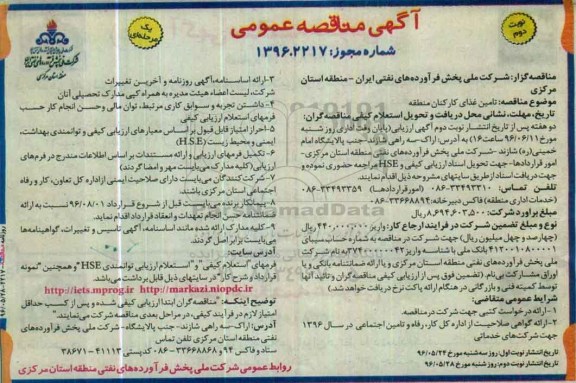 آگهی مناقصه عمومی
شماره مجوز: ۱۳۹۶.۲۲۱۷
نوبت دوم
یک مرحله‌ای
شرکت ملی پخش فرآورده‌های نفتی ایران
منطقه استان مرکزی
مناقصه گزار: شرکت ملی پخش فرآورده‌های نفتی ایران - منطقه استان مرکزی
موضوع مناقصه: تامین غذای کارکنان منطقه
تاریخ، مهلت، نشانی محل دریافت و تحویل استعلام کیفی مناقصه گران:
دو هفته پس از تاریخ انتشار نوبت دوم آگهی ارزیابی (پایان وقت اداری روز شنبه
مورخ ۹۶/۰۶/۱۱ ساعت ۱۶) به آدرس: اراک- سه راهی شازند- جنب پالایشگاه امام
خمینی (ره) شازند- شرکت ملی پخش فرآورده‌های نفتی منطقه استان مرکزی-
امور قراردادها- جهت تحویل اسناد ارزیابی کیفی و HSE مراجعه حضوری نموده و
جهت دریافت اسناد از طریق سایتهای مشروحه ذیل اقدام نمایند.
تلفن تماس: ۳۳۴۹۳۳۱۰-۰۸۶ (امور قراردادها) ۳۳۴۹۳۳۵۹-۰۸۶
(خدمات اداری منطقه) فاکس دبیرخانه: ۳۳۶۶۸۸۹۴-۰۸۶
مبلغ برآورد شرکت: ۸,۶۹۴,۶۰۳,۵۰۰ ریال
نوع و مبلغ تضمین شرکت در فرآیند ارجاع کار: واریز ۴۴۰,۰۰۰,۰۰۰ ریال
(چهارصد و چهل میلیون ریال) جهت شرکت در مناقصه به شماره حساب سیبای
بانک ملی با شناسه واریز
به نام شرکت
ملی پخش فرآورده‌های نفتی منطقه استان مرکزی و یا ارائه ضمانتنامه بانکی و یا
اوراق مشارکت بی‌نام. (تضمین فوق پس از ارزیابی کیفی مناقصه گران و تائید آنها
توسط کمیته فنی و بازرگانی در هنگام ارائه پاکت نرخ دریافت خواهد شد.)
شرایط عمومی متقاضی:
۱- ارائه درخواست کتبی جهت شرکت در مناقصه.
۲- ارائه گواهی صلاحیت از اداره کل کار، رفاه و تامین اجتماعی در سال ۱۳۹۶
جهت شرکت‌های خدماتی
تاریخ انتشار نوبت اول: روز سه شنبه مورخ ۹۶/۰۵/۲۴
تاریخ انتشار نوبت دوم: روز شنبه مورخ ۹۶/۰۵/۲۸
۳- ارائه اساسنامه، آگهی روزنامه و آخرین تغییرات
شرکت، لیست اعضاء هیئت مدیره به همراه کپی مدارک تحصیلی آنان
۴- داشتن تجربه و سوابق کاری مرتبط، توان مالی و حسن انجام کار حسب
فرمهای استعلام ارزیابی کیفی
۵- احراز امتیاز قابل قبول بر اساس معیار های ارزیابی کیفی و توانمندی بهداشت،
ایمنی و محیط زیست (H.S.E)
۶- تکمیل فرمهای ارزیابی و ارائه مستندات بر اساس اطلاعات مندرج در فرم‌های
ارزیابی (کلیه مدارک می‌بایست مهر و امضاء گردند)
۷- شرکت کنندگان می‌بایست دارای صلاحیت ایمنی از اداره کل تعاون، کار و رفاه
اجتماعی استان مرکزی باشند.
۸- پیمانکار برنده می‌بایست قبل از شروع قرارداد ۹۶/۰۸/۰۱ نسبت به ارائه
ضمانتنامه حسن انجام تعهدات و انعقاد قرارداد اقدام نماید.
۹- کلیه مدارک ارائه شده مانند اساسنامه، آگهی تاسیس و تغییرات، گواهینامه‌ها
می‌بایست برابر اصل گردند.
آدرس سایت:
فرمهای "استعلام ارزیابی کیفی" و "استعلام ارزیابی توانمندی HSE" و همچنین "نمونه
قرارداد و شرح کار" در سایتهای ذیل قابل برداشت می‌باشد.
http://iets.mporg.ir http://markazi.niopdc.ir
توضیح اینکه: "مناقصه گران ابتدا ارزیابی کیفی شده و پس از کسب حداقل
امتیاز لازم در فرآیند کیفی، در مراحل بعدی مناقصه شرکت می‌نمایند."
آدرس: اراک- سه راهی شازند- جنب پالایشگاه- شرکت ملی پخش فرآورده‌های
نفتی منطقه استان مرکزی تلفن تماس
ستاد و فاکس ۹۴ و ۳۳۶۶۸۸۶۸-۰۸۶ کدپستی ۴۱۱۱۳-۳۸۶۷۱
روابط عمومی شرکت ملی پخش فرآورده‌های نفتی منطقه استان مرکزی